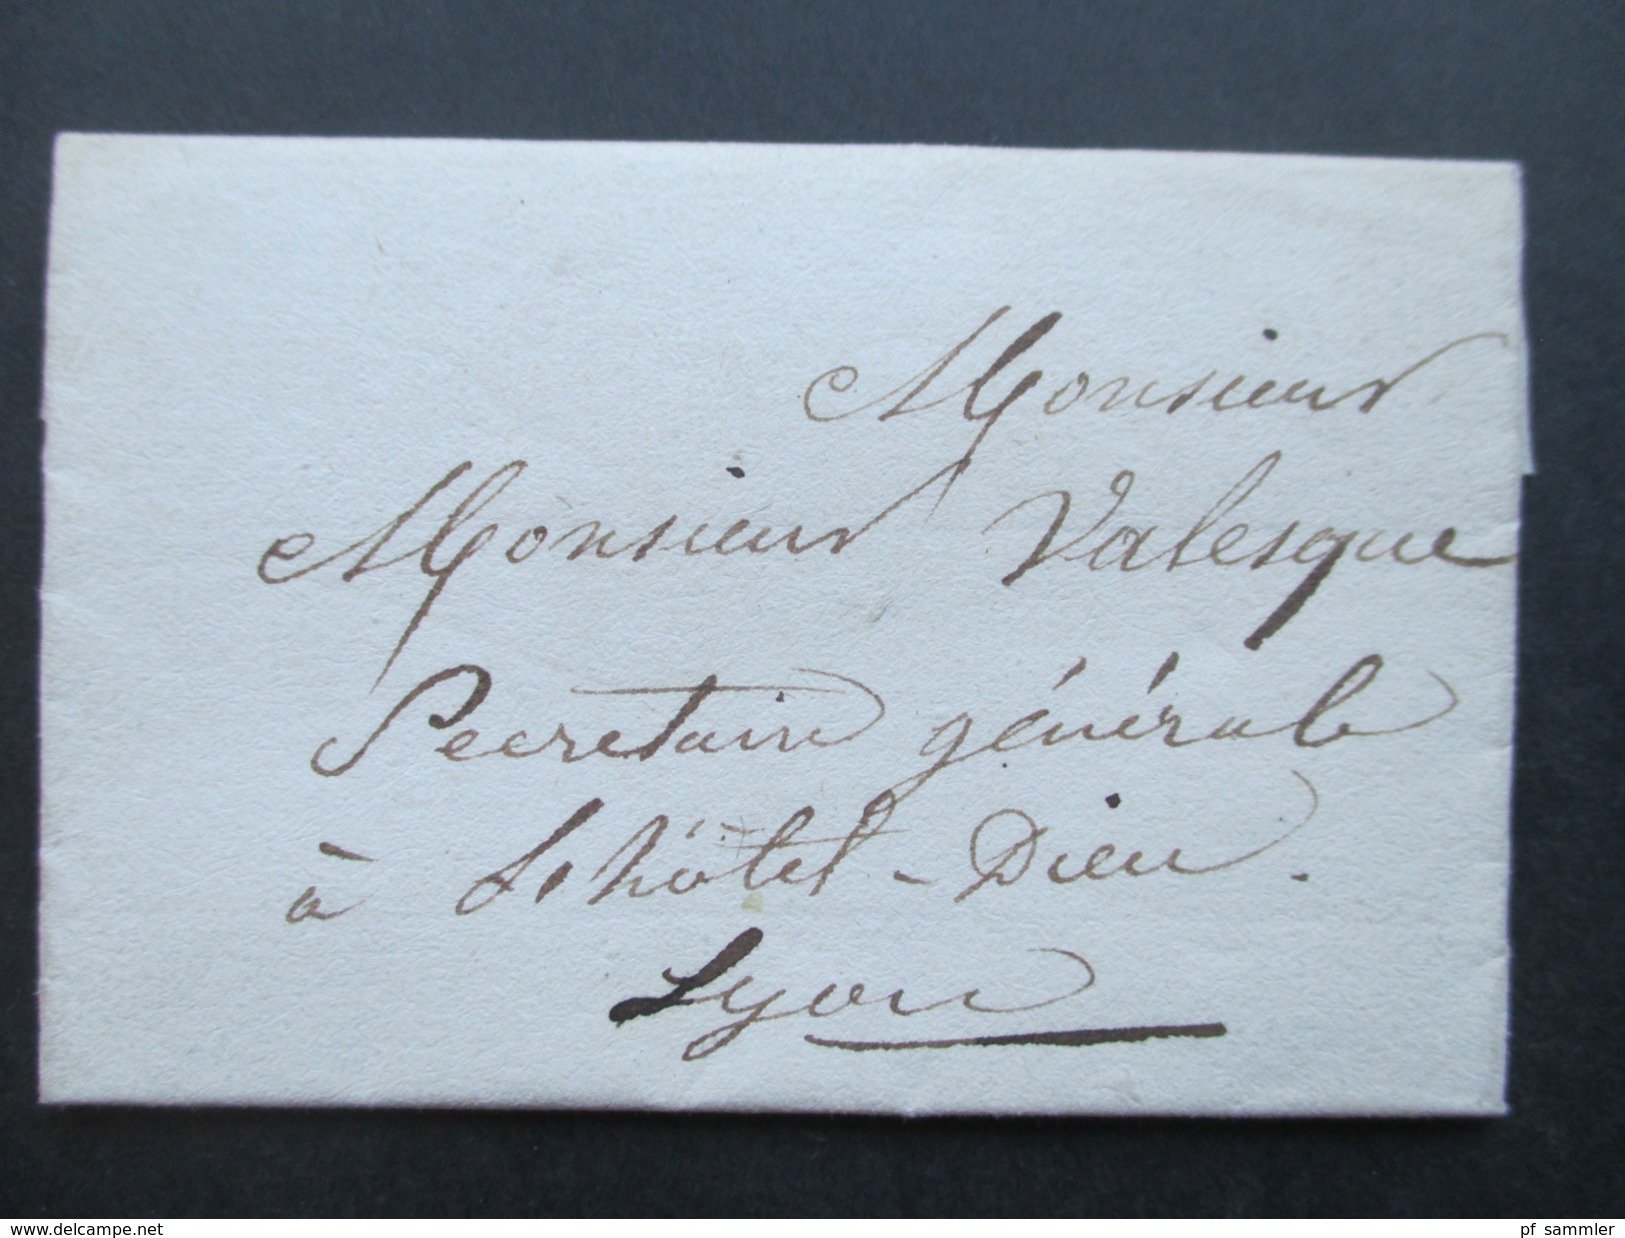 Monsieur
Monsieur Valesque
Secretaire général
à L'hôtel-Dieu.
Lyon
www.delcampe.net
pf_sammler